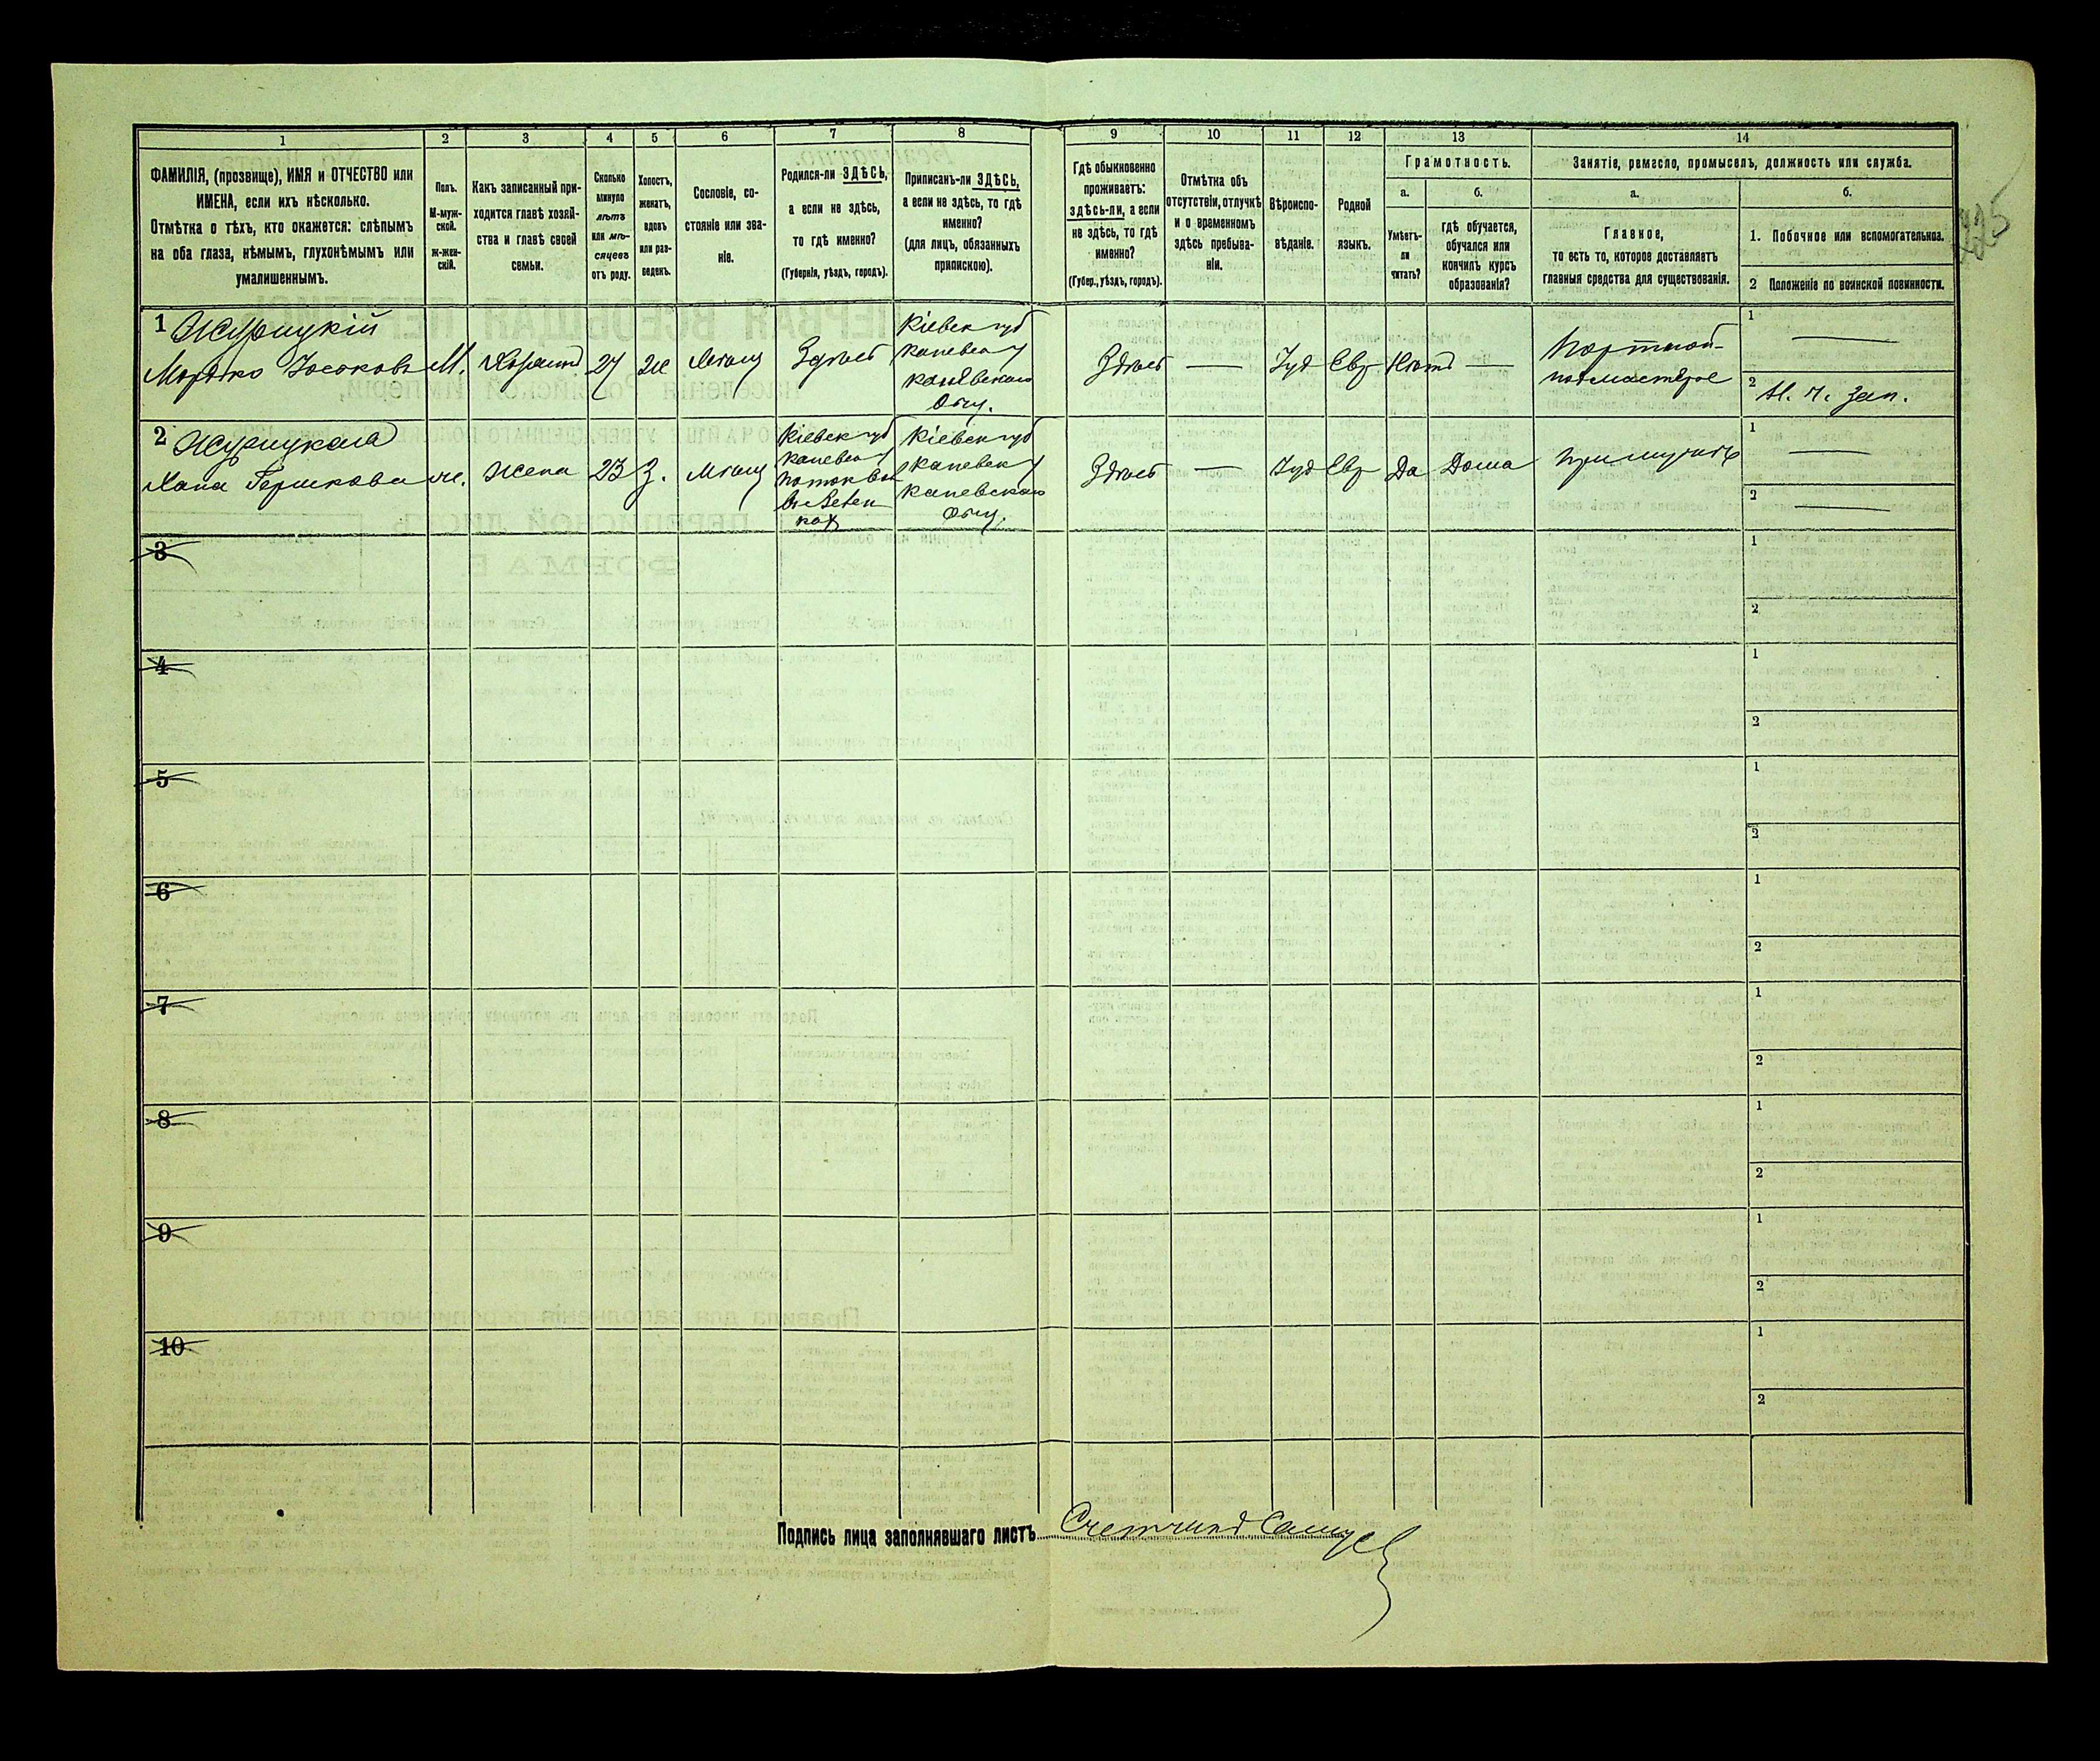 1 2 3 4 5 6 7 8 9 10 11 12 13 14
ФАМИЛІЯ, (прозвище), ИМЯ и ОТЧЕСТВО или
ИМЕНА, если ихъ нѣсколько.
Отмѣтка о тѣхъ, кто окажется: слѣпымъ
на оба глаза, нѣмымъ, глухонѣмымъ или
умалишеннымъ.
Полъ.
М-муж-
ской.
ж-жен-
скій.
Какъ записанный при-
ходится главѣ хозяй-
ства и главѣ своей
семьи.
Сколько
минуло
лѣтъ
или мѣ-
сяцевъ
отъ роду.
Холостъ,
женатъ,
вдовъ
или раз-
веденъ.
Сословіе, со-
стояніе или зва-
ніе.
Родился-ли ЗДѢСЬ,
а если не здѣсь,
то гдѣ именно?
(Губернія, уѣздъ, городъ).
Приписанъ-ли ЗДѢСЬ,
а если не здѣсь, то гдѣ
именно?
(для лицъ, обязанныхъ
припискою).
Гдѣ обыкновенно
проживаетъ:
здѣсь-ли, а если
не здѣсь, то гдѣ
именно?
(Губер., уѣздъ, городъ).
Отмѣтка объ
отсутствіи, отлучкѣ
и о временномъ
здѣсь пребыва-
ніи.
Вѣроиспо-
вѣданіе.
Родной
языкъ.
Грамотность.
а.
Умѣетъ-
ли
читать?
б.
гдѣ обучается,
обучался или
кончилъ курсъ
образованія?
Занятіе, ремесло, промыселъ, должность или служба.
а.
Главное,
то есть то, которое доставляетъ
главныя средства для существованія.
б.
1. Побочное или вспомогательное.
2 Положеніе по воинской повинности.
225
1 Журицкій
Мордко Іосіоковъ М. Хозяинъ 27 Же Мѣщ Здѣсь
Кіевск губ
Каневск у
Каневскаго
Общ.
Здѣсь — Іуд Евр Нѣтъ —
Портной-
подмастерье
1 —
2 Н. ч. зап.
2 Журицкая
Хана Гершкова ж. Жена 23 З. Мѣщ
Кіевск губ
Каневск у
Кіевск губ
Каневск у
Каневскаго
Общ.
Здѣсь — Іуд Евр Да Дома При мужѣ
1 —
2 —
3
1
2
4
1
2
5
1
2
6
1
2
7
1
2
8
1
2
9
1
2
10
1
2
Подпись лица заполнявшаго листъ Счетчикъ